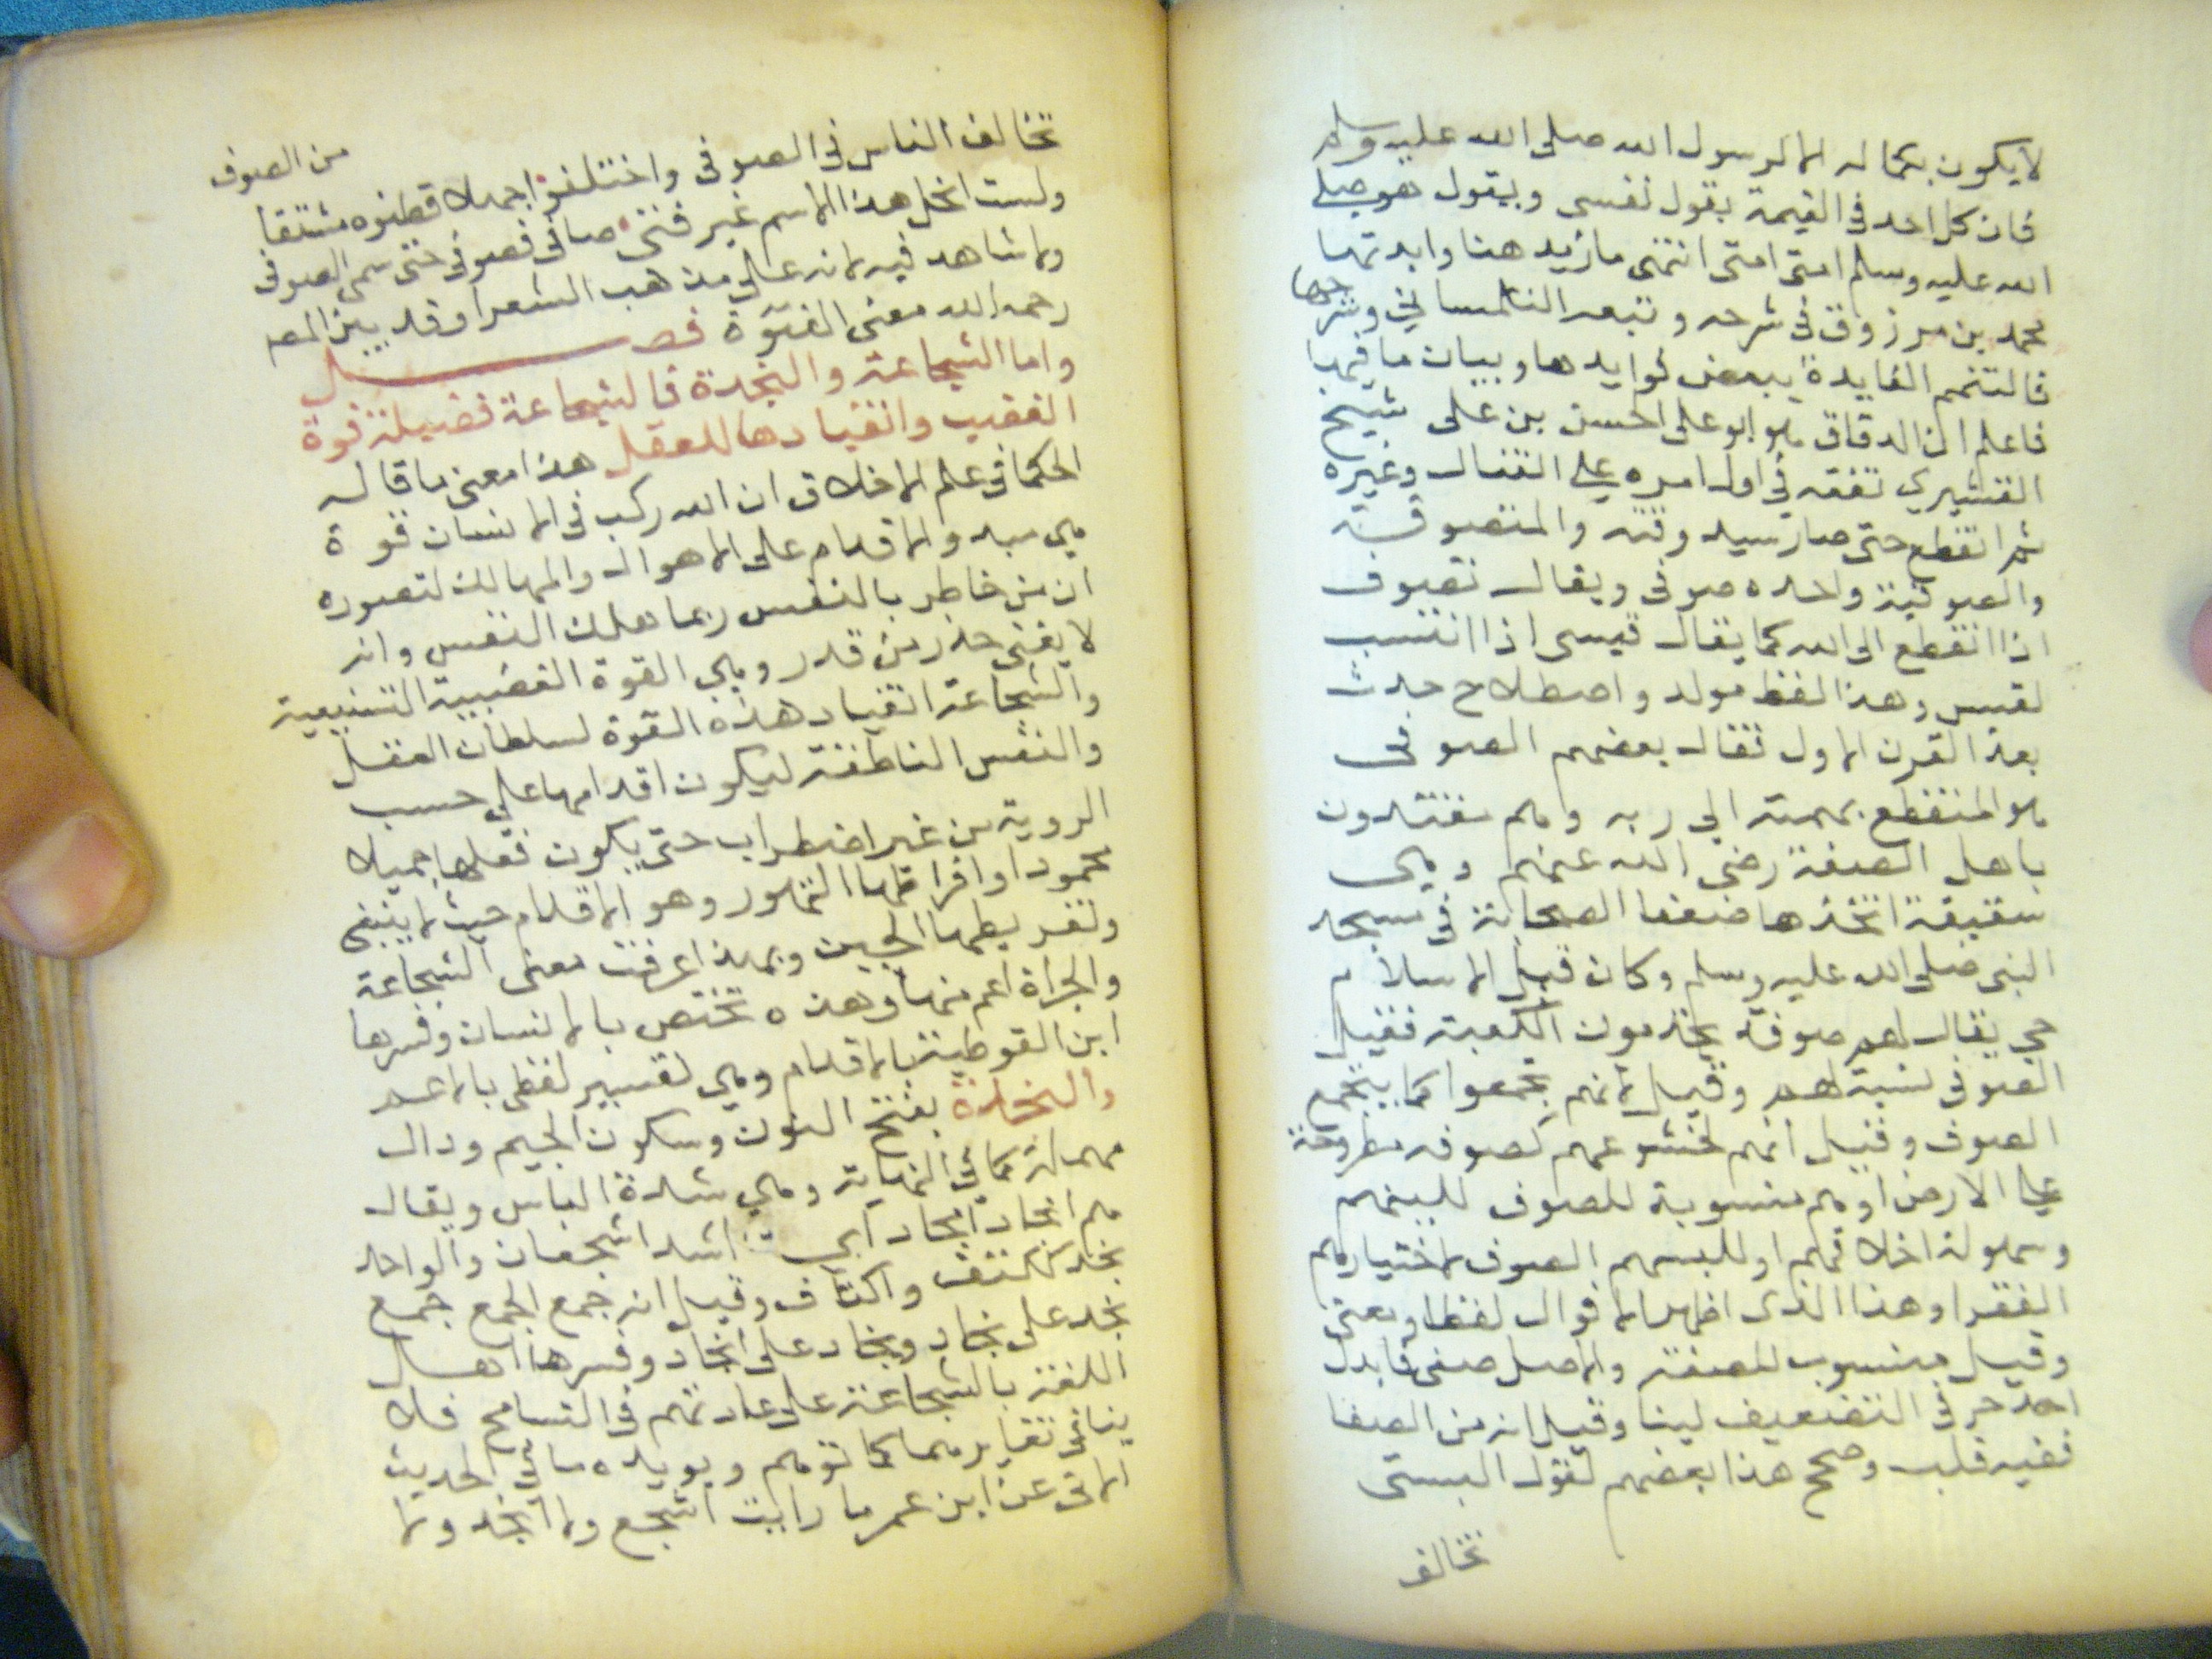 لا يكون بكماله الا لرسول الله صلى الله عليه وسلم
فان كل احد في القيمة يقول نفسي ويقول هو صلى
الله عليه وسلم امتى امتى انتهى مازيد هنا وابدتها
محمد بن مرزوق في شرحه وتبعه التلمساني وشرحها
فالتتمم الفايدة ببعض فوايدها وبيان ما فيها
فاعلم ان الدقاق هو ابو على الحسن بن على شيخ
القشيري تفقه في اول امره على القفال وغيره
ثم انقطع حتى صار سيد وقته والمتصوفة
والصوفية واحده صوفى ويقال تصوف
اذا انقطع الى الله كما يقال قيسى اذا انتسب
لقيس وهذا لفظ مولد واصطلاح حدث
بعد القرن الاول فقال بعضهم الصوفى
هو المنقطع بهمته الى ربه وهم مقتدون
باهل الصفة رضى الله عنهم وهى
سقيفة اتخذها ضعفا الصحابة في مسجد
النبى صلى الله عليه وسلم وكان قبل الاسلام
حي يقال لهم صوفة يخدمون الكعبة فقيل
الصوفى نسبة لهم وقيل لانهم تجمعوا كما يتجمع
الصوف وقيل انهم لخشوعهم كصوفه مطروحة
على الارض او هم منسوبة للصوف للينهم
وسهولة اخلاقهم او للبسهم الصوف لاختيارهم
الفقر او هذا الذى اظهر الاقوال لفظا ومعنى
وقيل منسوب للصفة والاصل صفى فابدل
احد حر في التضعيف لينا وقيل انه من الصفا
ففيه قلب وصحح هذا بعضهم لقول البستى
تخالف
تخالف الناس في الصوفى واختلفوا جهلا فظنوه مشتقا
من الصوف
ولست انحل هذا الاسم غير فتى صافى فصوفى حتى سمى الصوفى
ولا شاهد فيه لانه على مذهب الشعرا وقد بين المص
رحمه الله معنى الفتوة فصل
واما الشجاعة والنجدة فالشجاعة فضيلة قوة
الغضب وانقيادها للعقل هذا معنى ما قاله
الحكما في علم الاخلاق ان الله ركب في الانسان قوة
هي مبد والاقدام على الاهوال والمهالك لتصوره
ان من خاطر بالنفس ربما هلك النفس وانه
لا يغنى حذر من قدر وهى القوة الغضبية السبعية
والشجاعة انقياد هذه القوة لسلطان العقل
والنفس الناطقة ليكون اقدامها على حسب
الروية من غير اضطراب حتى يكون فعلها جميلا
محمودا وافراطها التهور وهو الاقدام حيث لا ينبغى
وتفريطها الجبن وبهذا عرفت معنى الشجاعة
والجراة اعم منها وهذه تختص بالانسان وفسرها
ابن القوطية بالاقدام وهي تفسير لفظى بالاعم
والنجدة بفتح النون وسكون الجيم ودال
مهملة كما في النهاية وهي شدة الباس ويقال
هم انجاد امجاد اي اشدا شجعان والواحد
نجد ككتف واكتاف وقيل انه جمع الجمع جمع
نجد على نجاد ونجاد على انجاد وفسرها اهل
اللغة بالشجاعة على عادتهم في التسامح فلا
ينافى تغايرهما كما توهم ويويده ما في الحديث
الاتى عن ابن عمر ما رايت اشجع ولا انجد ولا